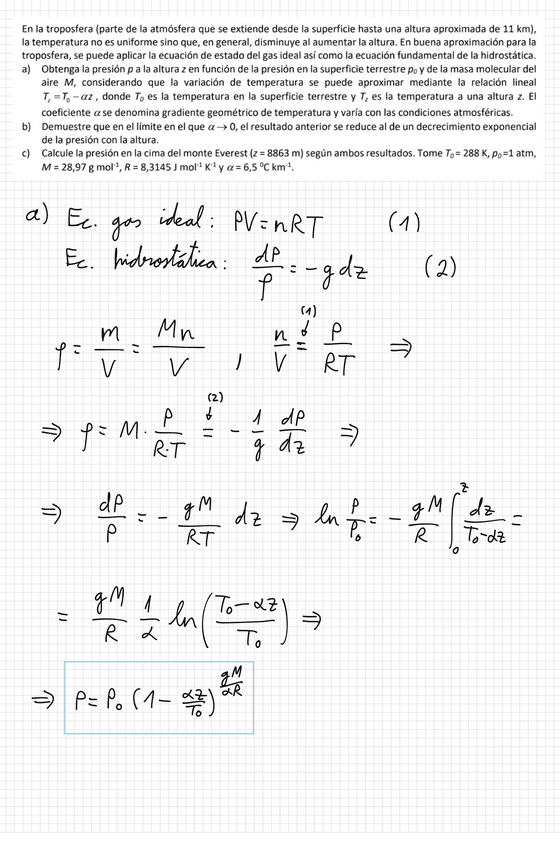 En la troposfera (parte de la atmósfera que se extiende desde la superficie hasta una altura aproximada de 11 km),
la temperatura no es uniforme sino que, en general, disminuye al aumentar la altura. En buena aproximación para la
troposfera, se puede aplicar la ecuación de estado del gas ideal así como la ecuación fundamental de la hidrostática.
a) Obtenga la presión p a la altura z en función de la presión en la superficie terrestre p₀ y de la masa molecular del
aire M, considerando que la variación de temperatura se puede aproximar mediante la relación lineal
T_z = T₀ − αz, donde T₀ es la temperatura en la superficie terrestre y T_z es la temperatura a una altura z. El
coeficiente α se denomina gradiente geométrico de temperatura y varía con las condiciones atmosféricas.
b) Demuestre que en el límite en el que α → 0, el resultado anterior se reduce al de un decrecimiento exponencial
de la presión con la altura.
c) Calcule la presión en la cima del monte Everest (z = 8863 m) según ambos resultados. Tome T₀ = 288 K, p₀=1 atm,
M = 28,97 g mol⁻¹, R = 8,3145 J mol⁻¹ K⁻¹ y α = 6,5 ⁰C km⁻¹.
a) Ec. gas ideal: PV=nRT (1)
Ec. hidrostática: dP/ρ = -g dz (2)
ρ = m/V = Mn/V , n/V =(1) P/RT ⇒
⇒ ρ = M · P/R·T =(2) - 1/g dP/dz ⇒
⇒ dP/P = - gM/RT dz ⇒ ln P/P₀ = - gM/R ∫₀^z dz/T₀-αz =
= gM/R 1/α ln(T₀-αz/T₀) ⇒
⇒ P = P₀ (1 - αz/T₀)^(gM/αR)